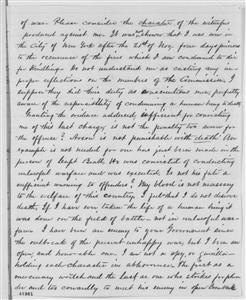 of war. Please consider the character of the witnesses
produced against me. It was shown that I was even in
the City of New York after the 28th of Nov. four days previous
to the occurence of the fires which I am condemned to die
for Kindling. Do not understand me as casting any im-
proper reflections on the members of the Commission, I
suppose they did their duty as conscientious men properly
aware of the responsibility of condemning a human being to death
Granting the evidence adduced sufficient for convicting
me of this last charge is not the penalty too severe for
the offence? Arson is not punishable with death! An
example is not needed for one has just been made in the
person of Capt Beall. He was convicted of conducting
unlawful warfare and was executed. Is not his fate a
sufficient warning to offenders? My blood is not necessary
to the welfare of this country. I feel that I do not deserve
death. If I have ever taken the life of a human being it
was done on the field of battle - not in unlawful war-
fare. I have been an enemy to your Government since
the outbreak of the present unhappy war but I have been an
open and honorable one. I am not a spy, or guerilla -
holding each character in abhorrence. The first as a
mercenary wretch and the last as one who strikes for plun-
der and too cowardly to meet his enemy in open combat.
41981